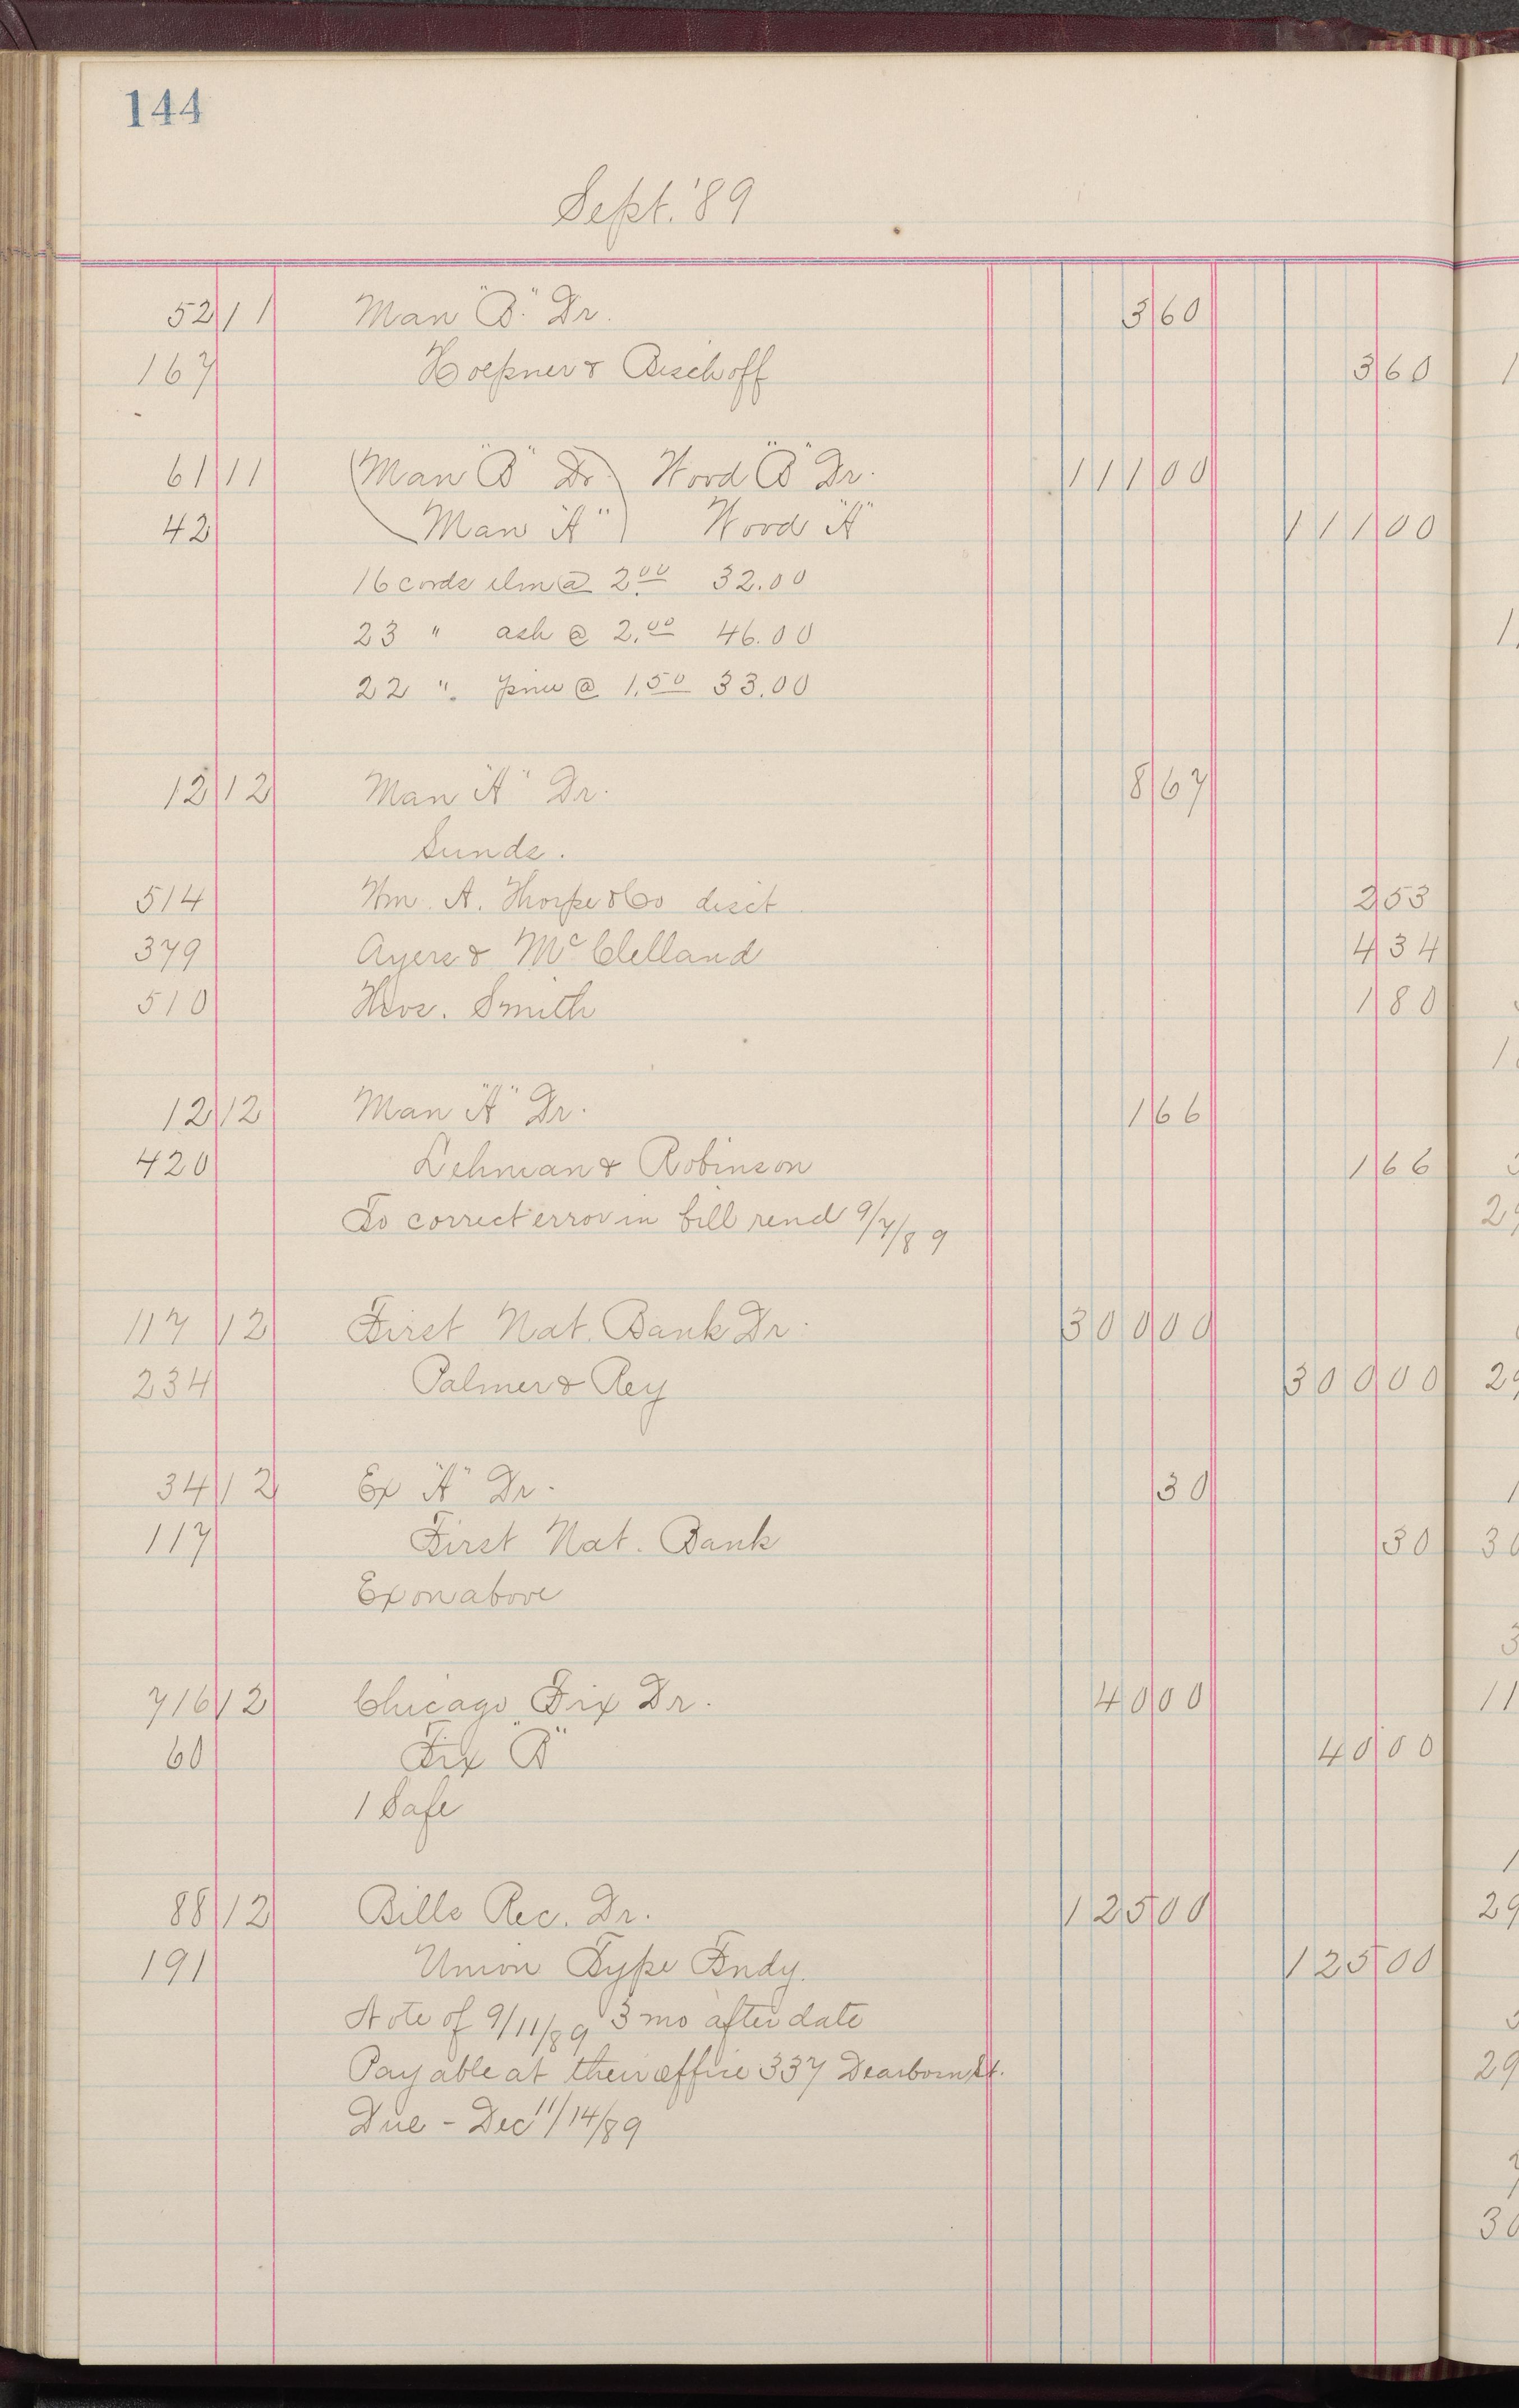 144
Sept. '89
52 11 Man "B" Dr. 3 60
167 Hoepner & Bischoff 3 60
61 11 (Man "B" Dr.) Wood "B" Dr. 111 00
42 (Man "A") Wood "A" 111 00
16 cords elm @ 2.00 32.00
23 " ash @ 2.00 46.00
22 " pine @ 1.50 33.00
12 12 Man "A" Dr. 8 67
Sunds.
514 Wm. A. Thorpe & Co disct 2 53
379 Ayers & McClelland 4 34
510 Thos. Smith 1 80
12 12 Man "A" Dr. 1 66
420 Lehman & Robinson 1 66
To correct error in bill rend 9/7/89
117 12 First Nat. Bank Dr. 300 00
234 Palmer & Rey 300 00
34 12 Ex "A" Dr. 30
117 First Nat. Bank 30
Ex on above
716 12 Chicago Fix Dr. 40 00
60 Fix "B" 40 00
1 Safe
88 12 Bills Rec. Dr. 125 00
191 Union Type Fndy. 125 00
Note of 9/11/89 3 mo after date
Payable at their office 337 Dearborn St.
Due - Dec 11/14/89